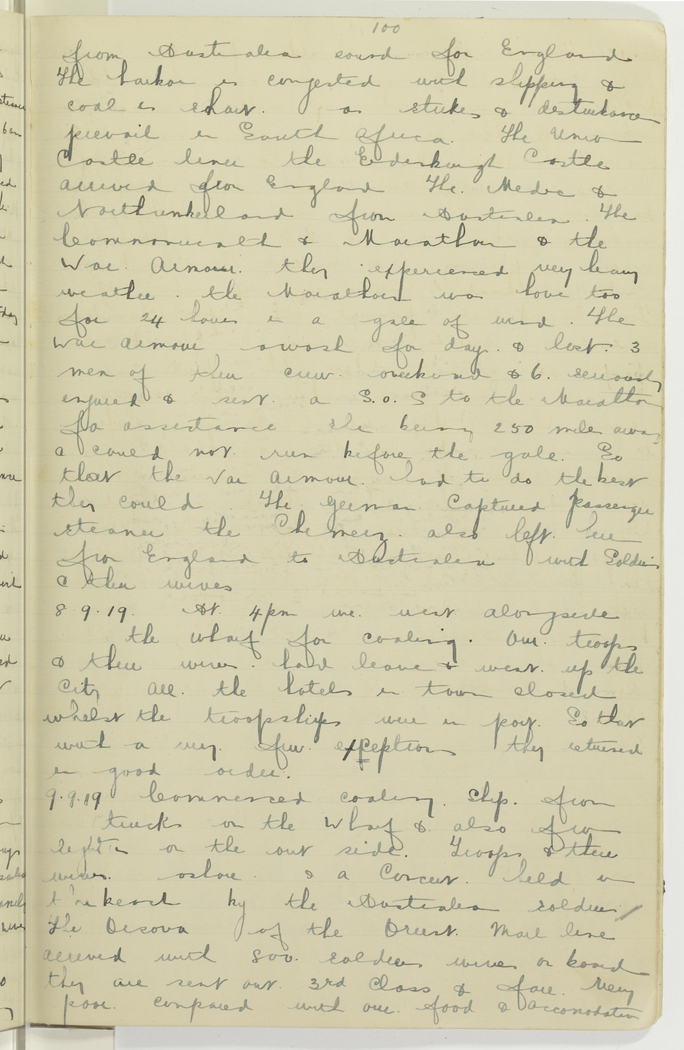 100
from Australia bound for England
The harbor is congested with shipping &
coal is short. as strikes & disturbances
prevail in South Africa. The Union
Castle liner the Edinburgh Castle
arrived from England The. Medic &
Northumberland from Australia. The
Commonwealth & Marathon & the
War Armour. they experienced very heavy
weather. the Marathon was hove too
for 24 hours in a gale of wind. The
War Armour awash for days. & lost. 3
men of their crew. overboard & 6. seriously
injured & sent. a S.O.S to the Marathon
for assistance she being 250 miles away
& could not run before the gale. So
that the War Armour. had to do the best
they could. The German Captured passenger
steamer the also left here
from England to Australia with Soldiers
& their wives
8.9.19. At. 4pm we. went alongside
the wharf for coaling. Our. troops
& their wives. had leave & went. up the
City All. the hotels in town closed
whilst the troopships were in port. So that
with a very. few. exceptions they returned
in good order.
9.9.19 Commenced coaling. Ship. from
trucks on the Wharf & also from
lighters on the out side. Troops & their
wives. ashore. & a Concert. held on
by the Australian soldiers
The Orsova of the Orient. Mail line
arrived with 800. soldiers wives on board
they are sent out. 3rd Class & fare. Very
poor. compared with our. food & accomodation